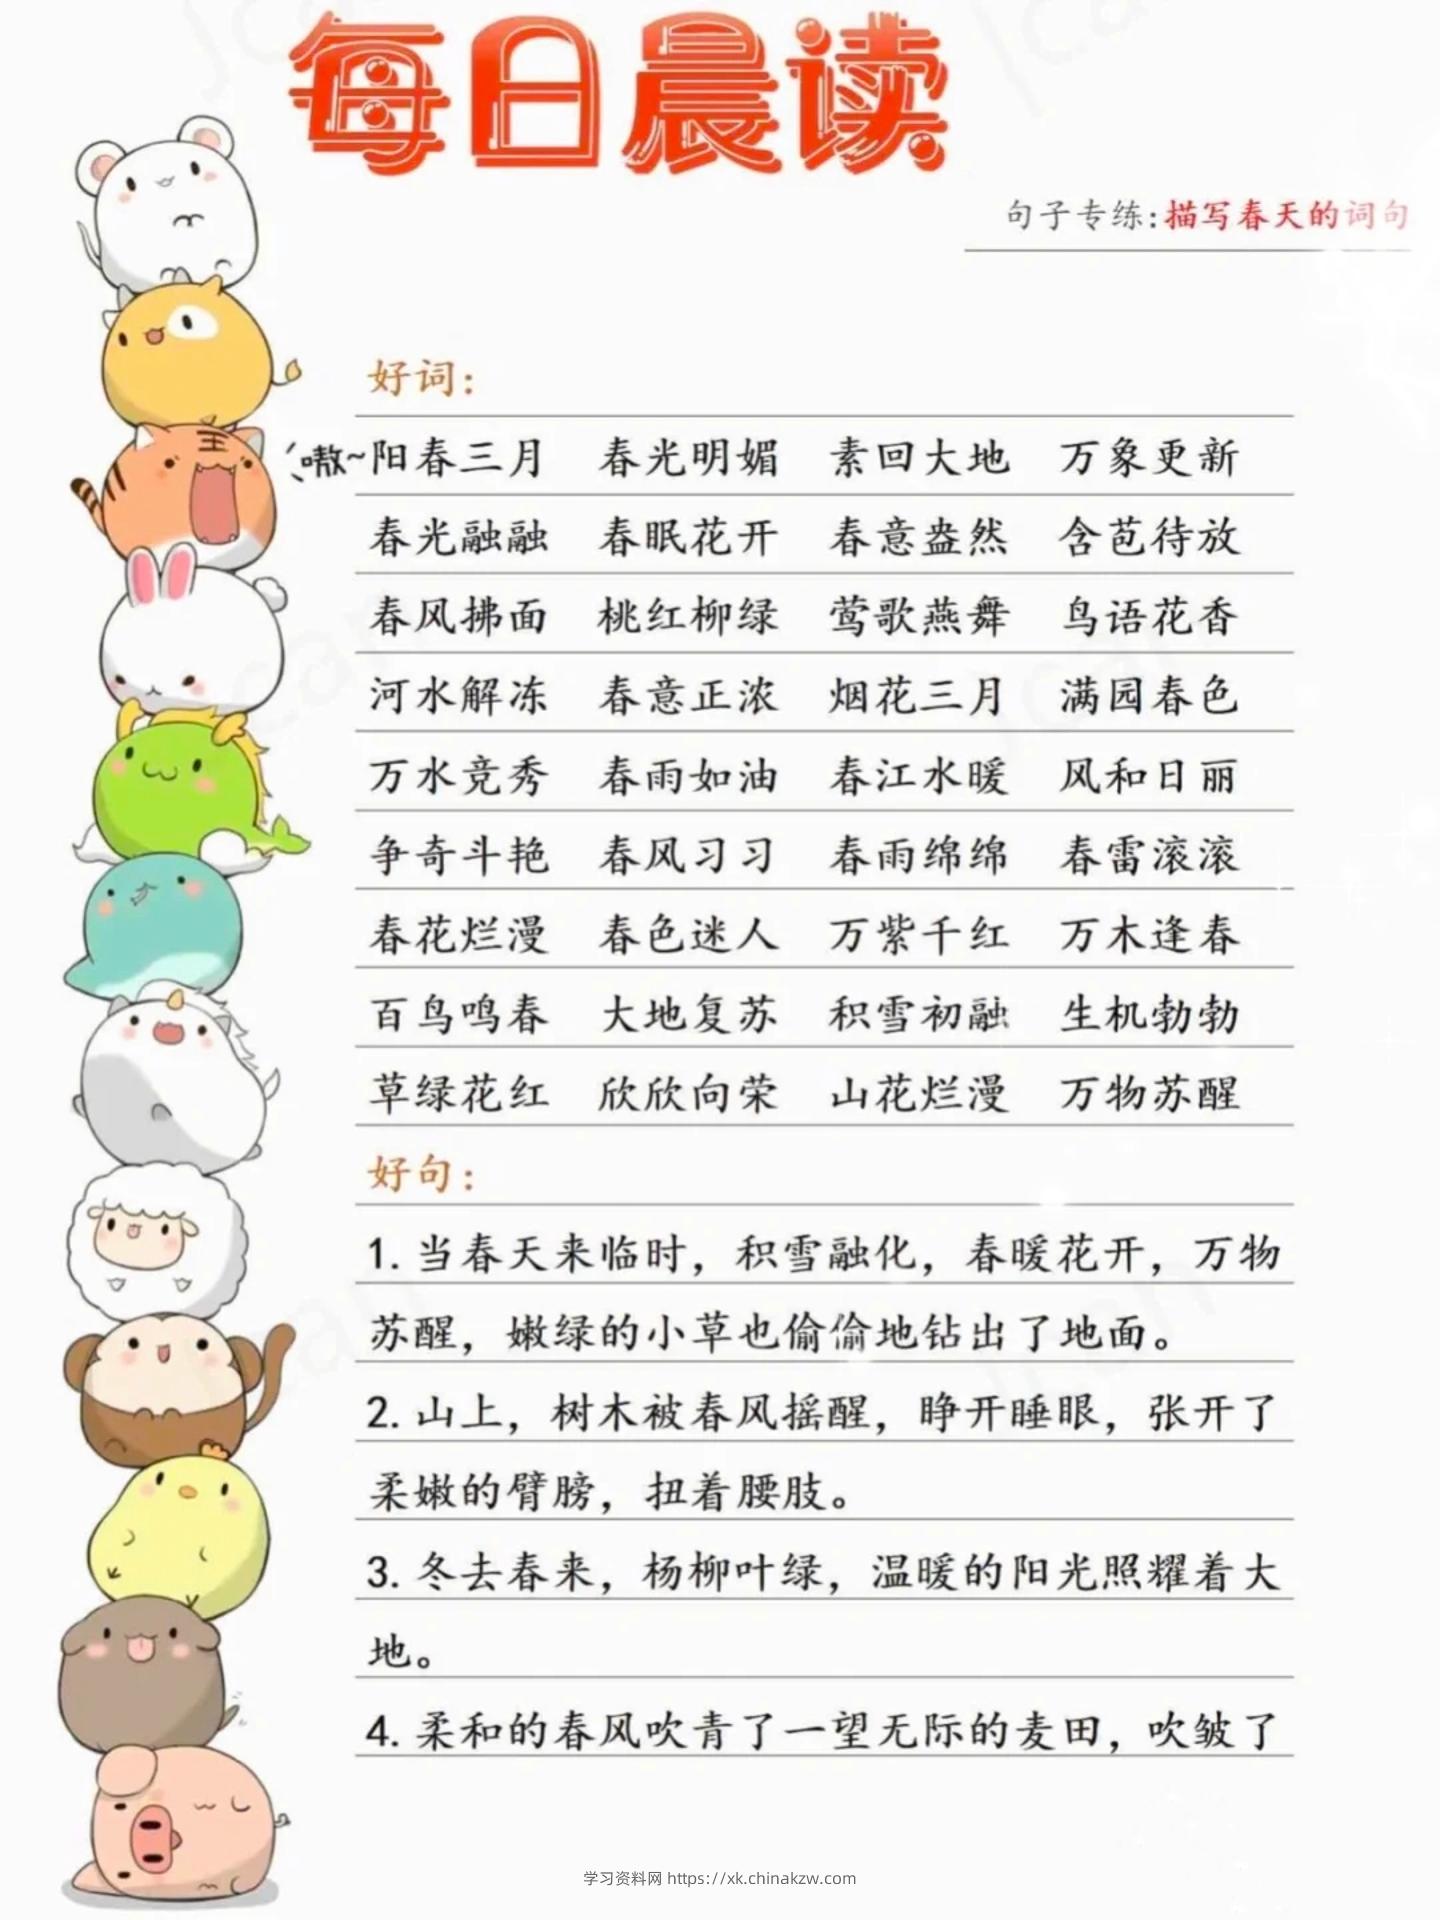 每日晨读
句子专练:描写春天的词句
好词：
嗷~
阳春三月 春光明媚 素回大地 万象更新
春光融融 春眠花开 春意盎然 含苞待放
春风拂面 桃红柳绿 莺歌燕舞 鸟语花香
河水解冻 春意正浓 烟花三月 满园春色
万水竞秀 春雨如油 春江水暖 风和日丽
争奇斗艳 春风习习 春雨绵绵 春雷滚滚
春花烂漫 春色迷人 万紫千红 万木逢春
百鸟鸣春 大地复苏 积雪初融 生机勃勃
草绿花红 欣欣向荣 山花烂漫 万物苏醒
好句：
1. 当春天来临时，积雪融化，春暖花开，万物
苏醒，嫩绿的小草也偷偷地钻出了地面。
2. 山上，树木被春风摇醒，睁开睡眼，张开了
柔嫩的臂膀，扭着腰肢。
3. 冬去春来，杨柳叶绿，温暖的阳光照耀着大
地。
4. 柔和的春风吹青了一望无际的麦田，吹皱了
学习资料网 https://xk.chinakzw.com